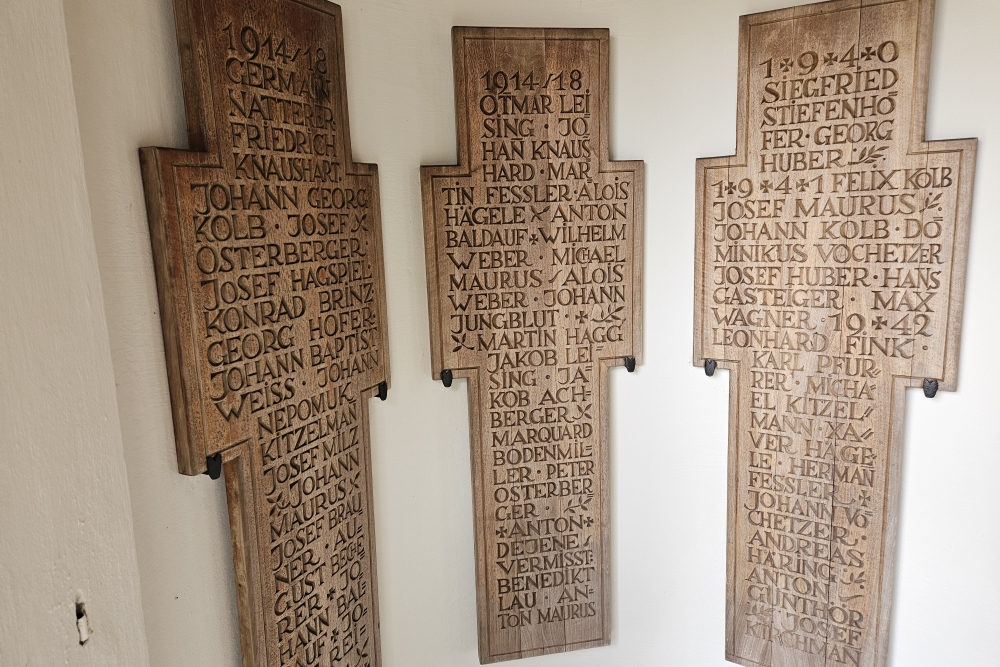 1914/18
GERMAN
NATTERER
FRIEDRICH
KNAUSHART·
JOHANN GEORG
KOLB · JOSEF
OSTERBERGER·
JOSEF HAGSPIEL·
KONRAD BRINZ
GEORG HOFER·
JOHANN BAPTIST
WEISS · JOHANN
NEPOMUK
KITZELMANN
JOSEF MILZ
JOHANN
MAURUS
JOSEF BRAU
NER · AU=
GUST BECHE
RER · JO=
HANN BAE
HAUF
1914/18
OTMAR LEI
SING · JO
HAN KNAUS
HARD · MAR
TIN FESSLER·ALOIS
HÄGELE ANTON
BALDAUF WILHELM
WEBER · MICHAEL
MAURUS ALOIS
WEBER · JOHANN
JUNGBLUT ·
MARTIN HAGG
JAKOB LEI
SING · JA
KOB ACH=
BERGER
MARQUARD
BODENMIL=
LER · PETER
OSTERBER
GER ·
ANTON
DEJENE
VERMISST=
BENEDIKT
LAU · AN=
TON MAURUS
1940
SIEGFRIED
STIEFENHÖ
FER · GEORG
HUBER
1941 FELIX KOLB
JOSEF MAURUS
JOHANN KOLB · DO
MINIKUS VOCHETZER
JOSEF HUBER · HANS
GASTEIGER · MAX
WAGNER · 1942
LEONHARD FINK ·
KARL PFUR=
RER · MICHA=
EL KITZEL=
MANN XA=
VER HÄGE
LE · HERMAN
FESSLER
JOHANN VO
CHETZER
ANDREAS
HARING
ANTON
GUNTHÖR
JOSEF
KIRCHMAN